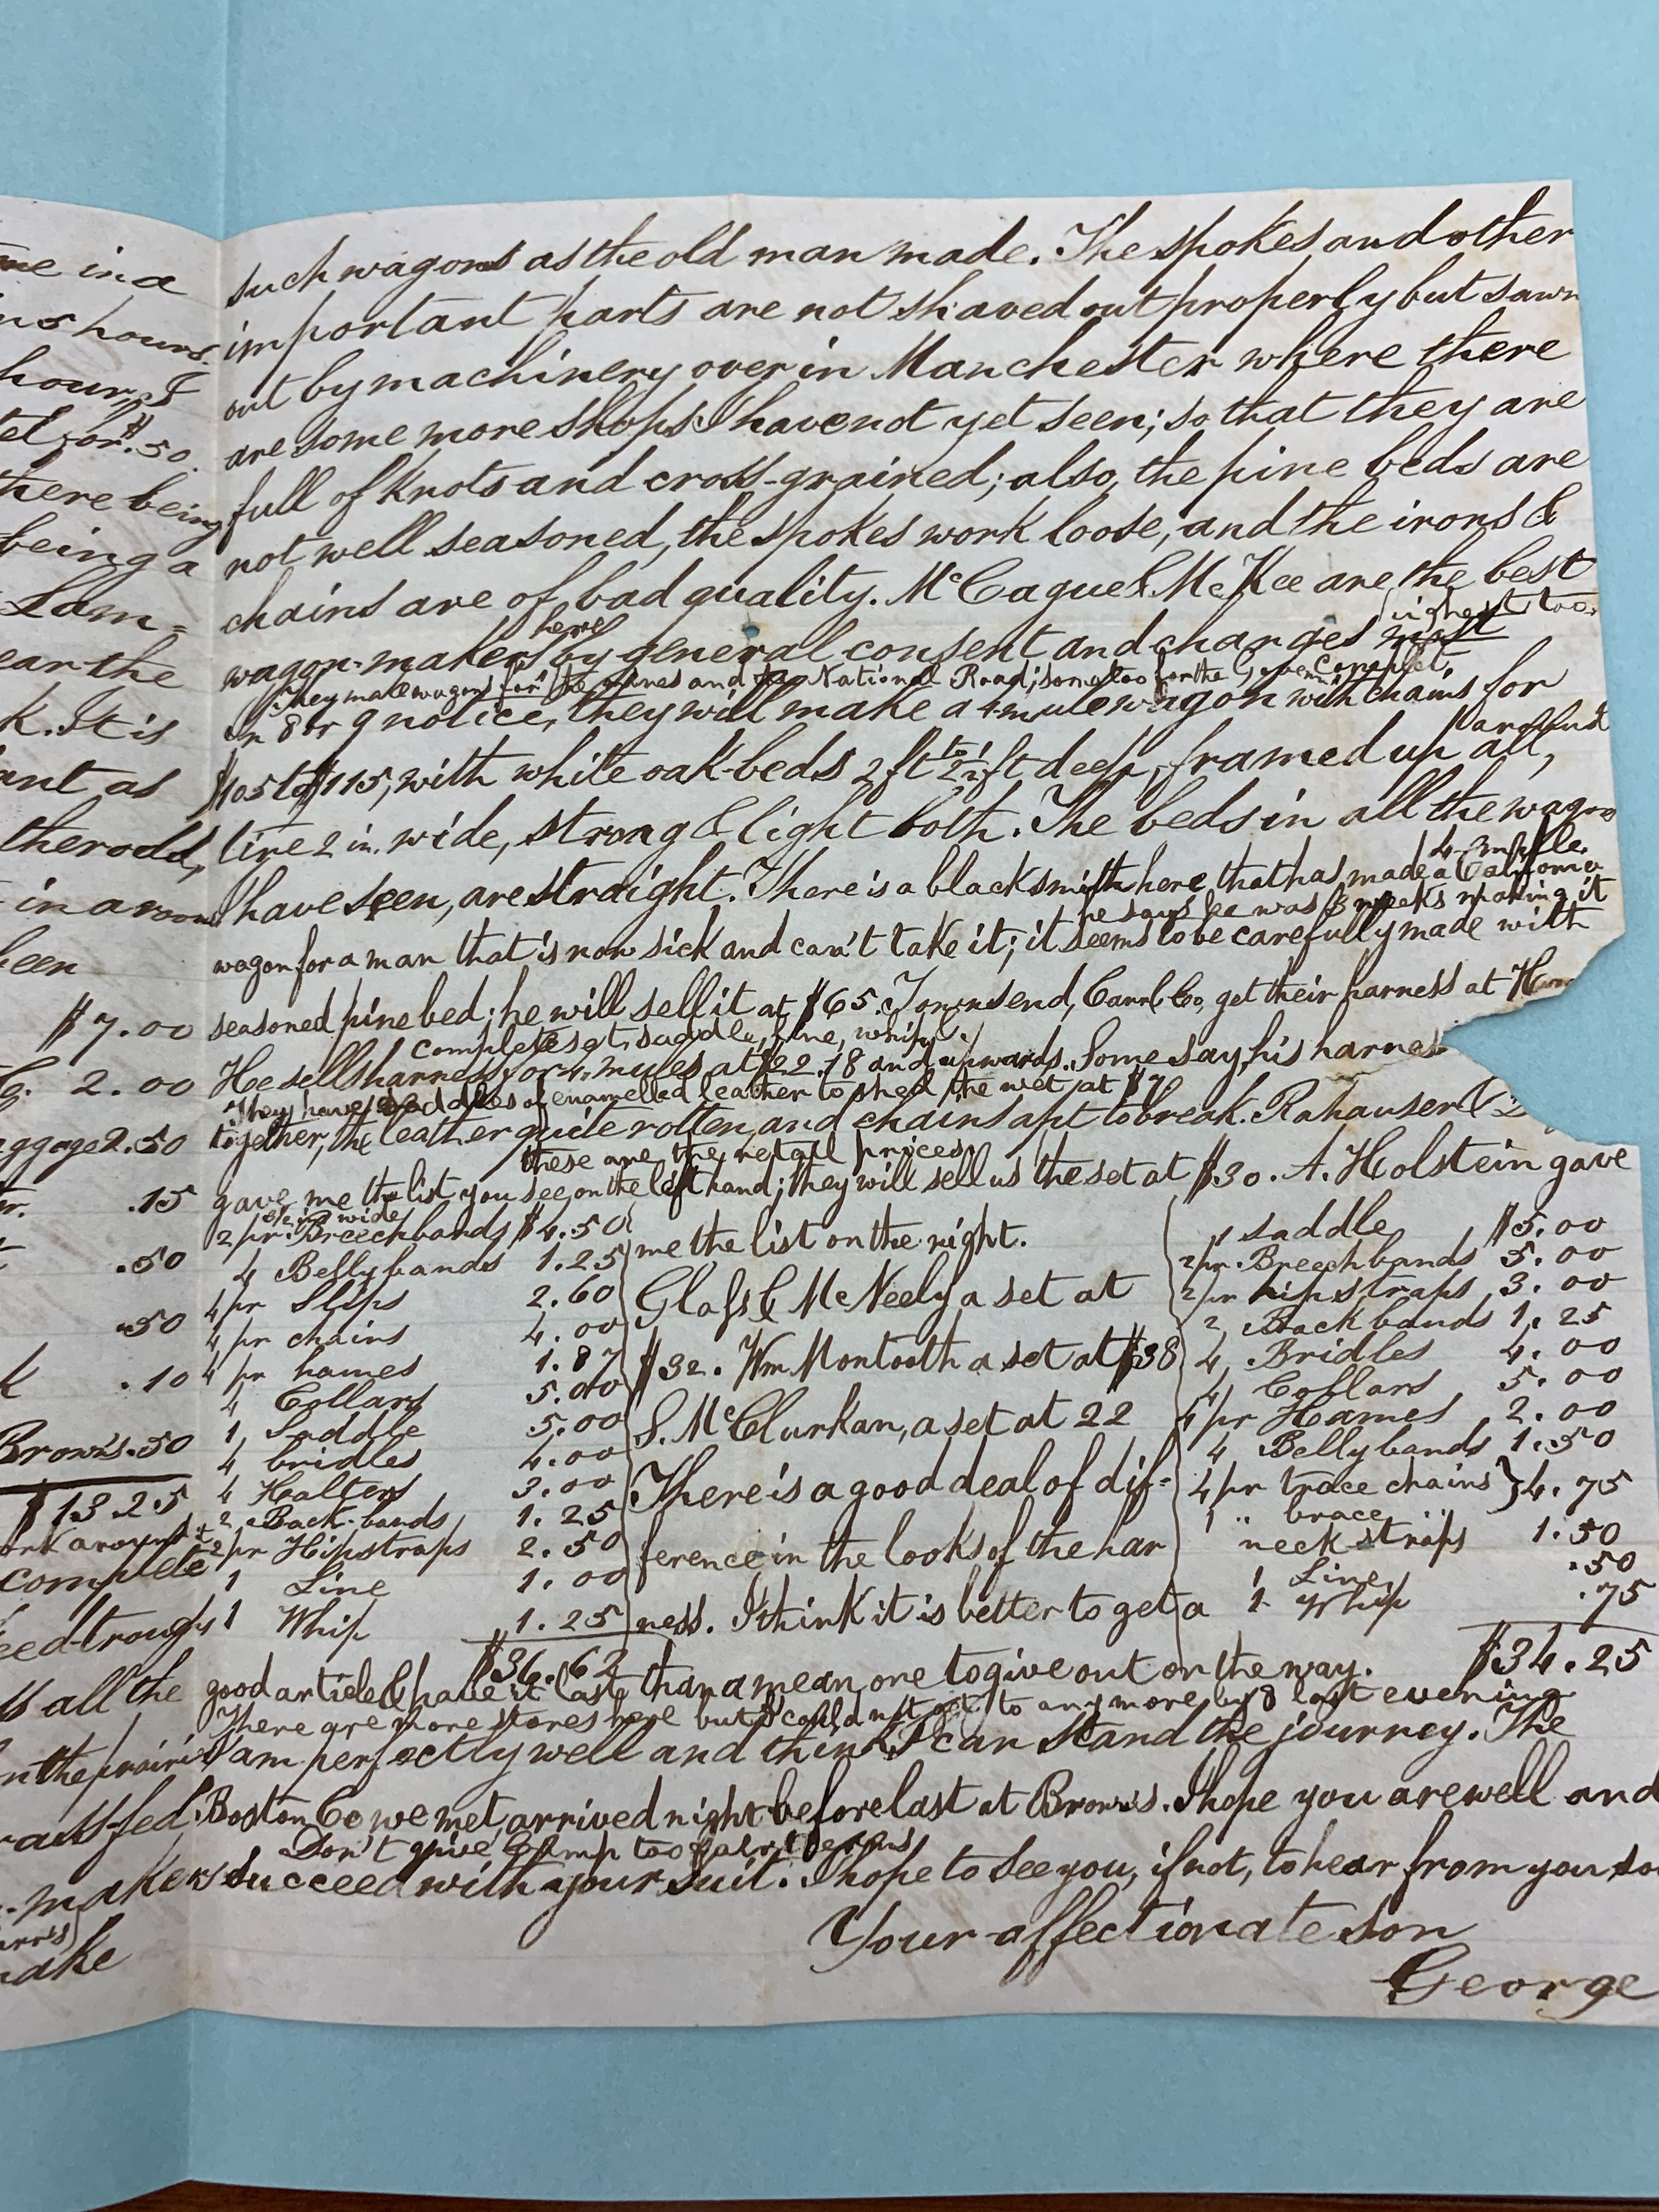 me in a
hours
hour, I
for $.50.
there being
being a
Lam=
ear the
k. It is
ant as
the rodd,
in a room
been
$7.00
2.00
ggage 2.50
.15
.50
.50
.10
Brown's .50
$13.25
complete
feed-trough
all the
on the prairie
fed
makers
make
such wagons as the old man made. The spokes and other
important parts are not shaved out properly but sawn
out by machinery over in Manchester where there
are some more shops I have not yet seen; so that they are
full of knots and cross-grained; also, the pine beds are
not well seasoned, the spokes work loose, and the irons &
chains are of bad quality. McCague & McKee are the best
here highest too.
wagon-makers by general consent and charges most
They make wagons for the mines and the National Road; some too for the Government,
In 8 or 9 notice, they will make a 4 mule wagon with chains for
$105 to $115, with white oak-beds 2 ft to 2½ ft deep, framed up all,
tire 2 in. wide, strong & light both. The beds in all the wagons
I have seen, are straight. There is a blacksmith here that has made a 4-mule California
he says he was 3 weeks making it
wagon for a man that is now sick and can't take it; it seems to be carefully made with
seasoned pine bed; he will sell it at $65. Townsend, Carr & Co, get their harness at
complete set, saddle, line, whip
He sells harness for 4 mules at $22.18 and upwards. Some say his harness
They have saddles of enamelled leather to shed the wet at $7
together, the leather quite rotten, and chains apt to break. Rahauser &
these are the retail prices
gave me the list you see on the left hand; they will sell us the set at $30. A. Holstein gave
me the list on the right.
Glass & McNeely a set at
$32. Wm Montooth a set at $38
S. McClurkan, a set at 22
There is a good deal of dif=
ference in the looks of the har
ness. I think it is better to get a
wide
2 pr. Breechbands $4.50
4 Bellybands 1.25
4 pr Slips 2.60
4 pr chains 4.00
4 pr hames 1.87
4 Collars 5.00
1 Saddle 5.00
4 bridles 4.00
4 Halters 3.00
2 Back-bands 1.25
2 pr Hipstraps 2.50
1 Line 1.00
1 Whip 1.25
$36.62
1 saddle $5.00
2 pr. Breechbands 5.00
2 pr hipstraps 3.00
2 Back bands 1.25
4 Bridles 4.00
4 Collars 5.00
4 pr Hames 2.00
4 Bellybands 1.50
4 pr trace chains } 4.75
1 " brace "
neck straps 1.50
1 Line .50
1 Whip .75
$34.25
good article & have it last than a mean one to give out on the way.
There are more stores here but I could not get to any more by 8 last evening
I am perfectly well and think I can stand the journey. The
Boston Co we met arrived night before last at Brown's. I hope you are well and
Don't give Camp too
succeed with your suit. I hope to see you, if not, to hear from you
Your affectionate son
George